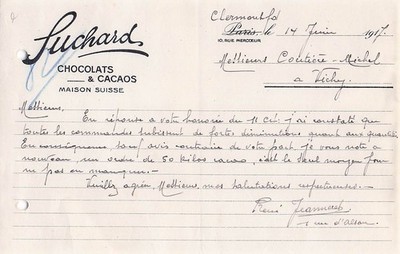 Suchard
CHOCOLATS
& CACAOS
MAISON SUISSE
Clermont Fd
Paris, le 14 Juin 1917.
10, RUE MERCŒUR
Messieurs Coutière-Michel
à Vichy.
Messieurs,
En réponse à votre honorée du 11 ct. j'ai constaté que
toutes les commandes subissent de fortes diminutions quant aux quantités
En conséquence sauf avis contraire de votre part, je vous note à
nouveau, un ordre de 50 kilos cacao, c'est le seul moyen pour
ne pas en manquer.-
Veuillez agréer, Messieurs, mes salutations respectueuses.-
René Jeanneret
rue d'Assas